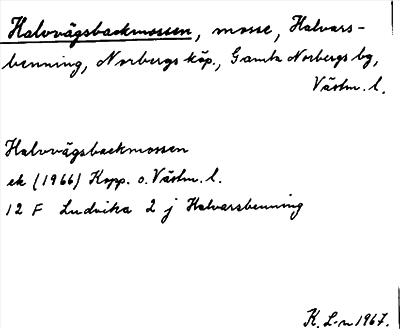 Halvvägsbackmossen, mosse, Halvars-
benning, Norbergs köp., Gamla Norbergs bg,
Västm. l.
Halvvägsbackmossen
ek (1966) Kopp. o. Västm. l.
12 F Ludvika 2 j Halvarsbenning
K. L-n 1967.